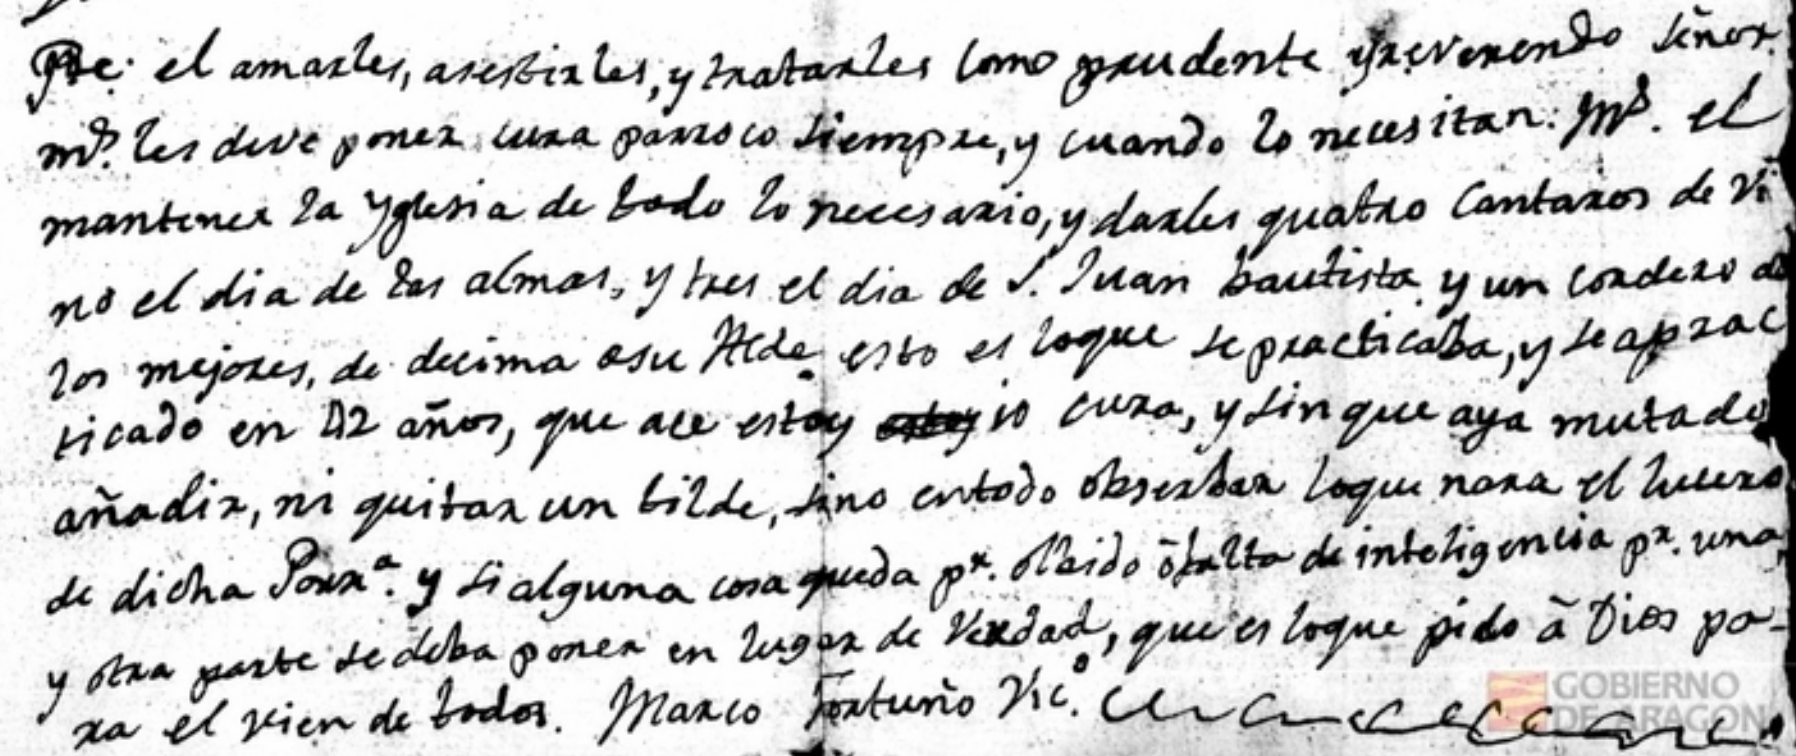 el amarles, asestirles, y tratarles como prudente y reverendo señor.
md. les deve poner cura parroco siempre, y cuando lo necesitan: Md. el
mantener la Yglesia de todo lo necesario, y darles quatro Cantaros de vi
no el dia de las almas, y tres el dia de S. Juan bautista y un cordero de
los mejores, de decima asu Alde. esto es loque sepracticaba, y se a prac
ticado en 42 años, que ace estoy io cura, y sin que aya mutado
añadir, ni quitar un tilde, sino entodo obserbar loque nara el lucero
de dicha Parra. y si alguna cosa queda pr. olbido ō falta de inteligencia pr. una,
y otra parte se deba poner en lugar de Verdad, que es loque pido ā Dios pa-
ra el vien de todos. Marco Fortuño Vico.
GOBIERNO
DE ARAGON